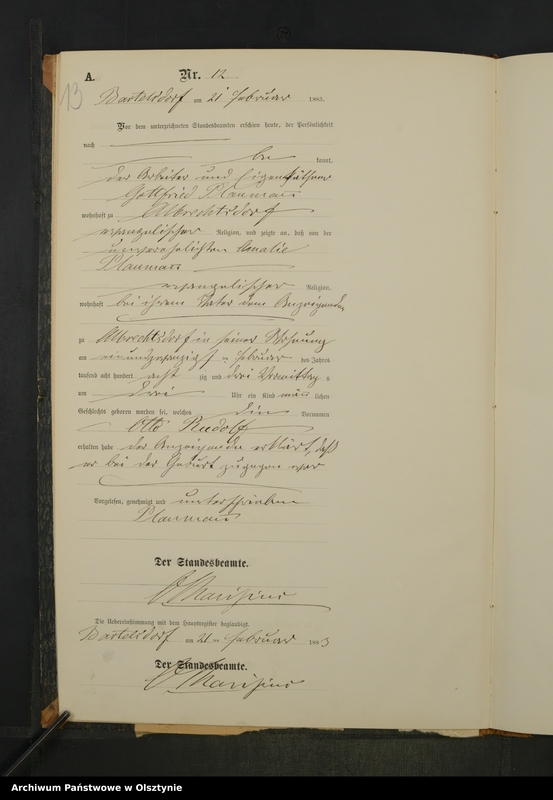 13
A.
Nr. 12
Bartelsdorf am 21 Februar 1883.
Vor dem unterzeichneten Standesbeamten erschien heute, der Persönlichkeit
nach
be kannt,
der Arbeiter und Eigenkäthner
Gottfried Plaumann
wohnhaft zu Albrechtsdorf
evangelischer Religion, und zeigte an, daß von der
unverehelichten Amalie
Plaumann
evangelischer Religion,
wohnhaft bei ihrem Vater dem Anzeigenden
zu Albrechtsdorf in seiner Wohnung
am ten Februar des Jahres
tausend acht hundert acht zig und drei Vormittag s
um drei Uhr ein Kind männ lichen
Geschlechts geboren worden sei, welches den Vornamen
Otto Rudolf
erhalten habe der Anzeigende erklärt, daß
er bei der Geburt zugegen war
Vorgelesen, genehmigt und unterschrieben
Plaumann
Der Standesbeamte.
Die Uebereinstimmung mit dem Hauptregister beglaubigt.
Bartelsdorf am 21 ten Februar 1883
Der Standesbeamte.
Archiwum Państwowe w Olsztynie